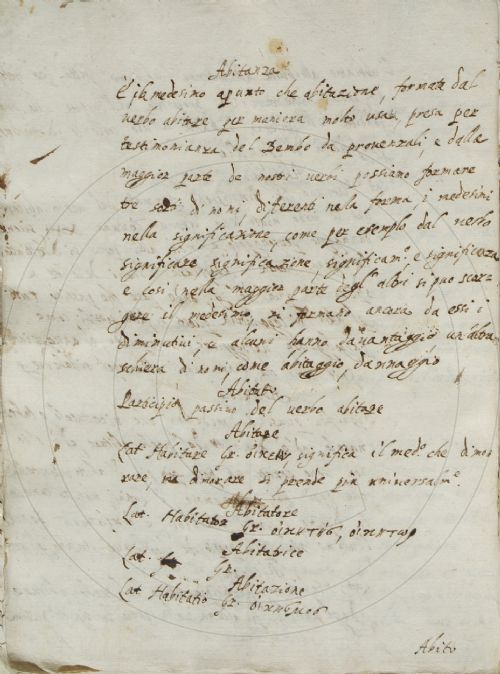 Abitanza
È il medesimo apunto che abitazione, formata dal
verbo abitare per maniera molto usata, presa per
testimonianza del Bembo da provenzali, e dalla
maggior parte de nostri verbi possiamo formare
tre sorti di nomi, diferenti nela forma, i medesimi
nella significazione, come per esempio dal verbo
significare, significazione, significam.o e significanza
e cosi nella maggior parte degl' altri si puo scor-
gere il medesimo, si formano ancora da essi i
diminutivi, e alcuni hanno davantaggio un'altra
schiera di nomi, come abitaggio, dannaggio
Abitato
Participio passivo del verbo abitare
Abitare
Lat. Habitare Gr. οἰκεῖν significa il med.o che dimo
rare, ma dimorare si prende più universalm.e
Abitatore
Lat. Habitator Gr. οἰκητὴς, οἰκήτωρ
Abitatrice
Lat. Gr.
Abitazione
Lat. Habitatio Gr.
Abito